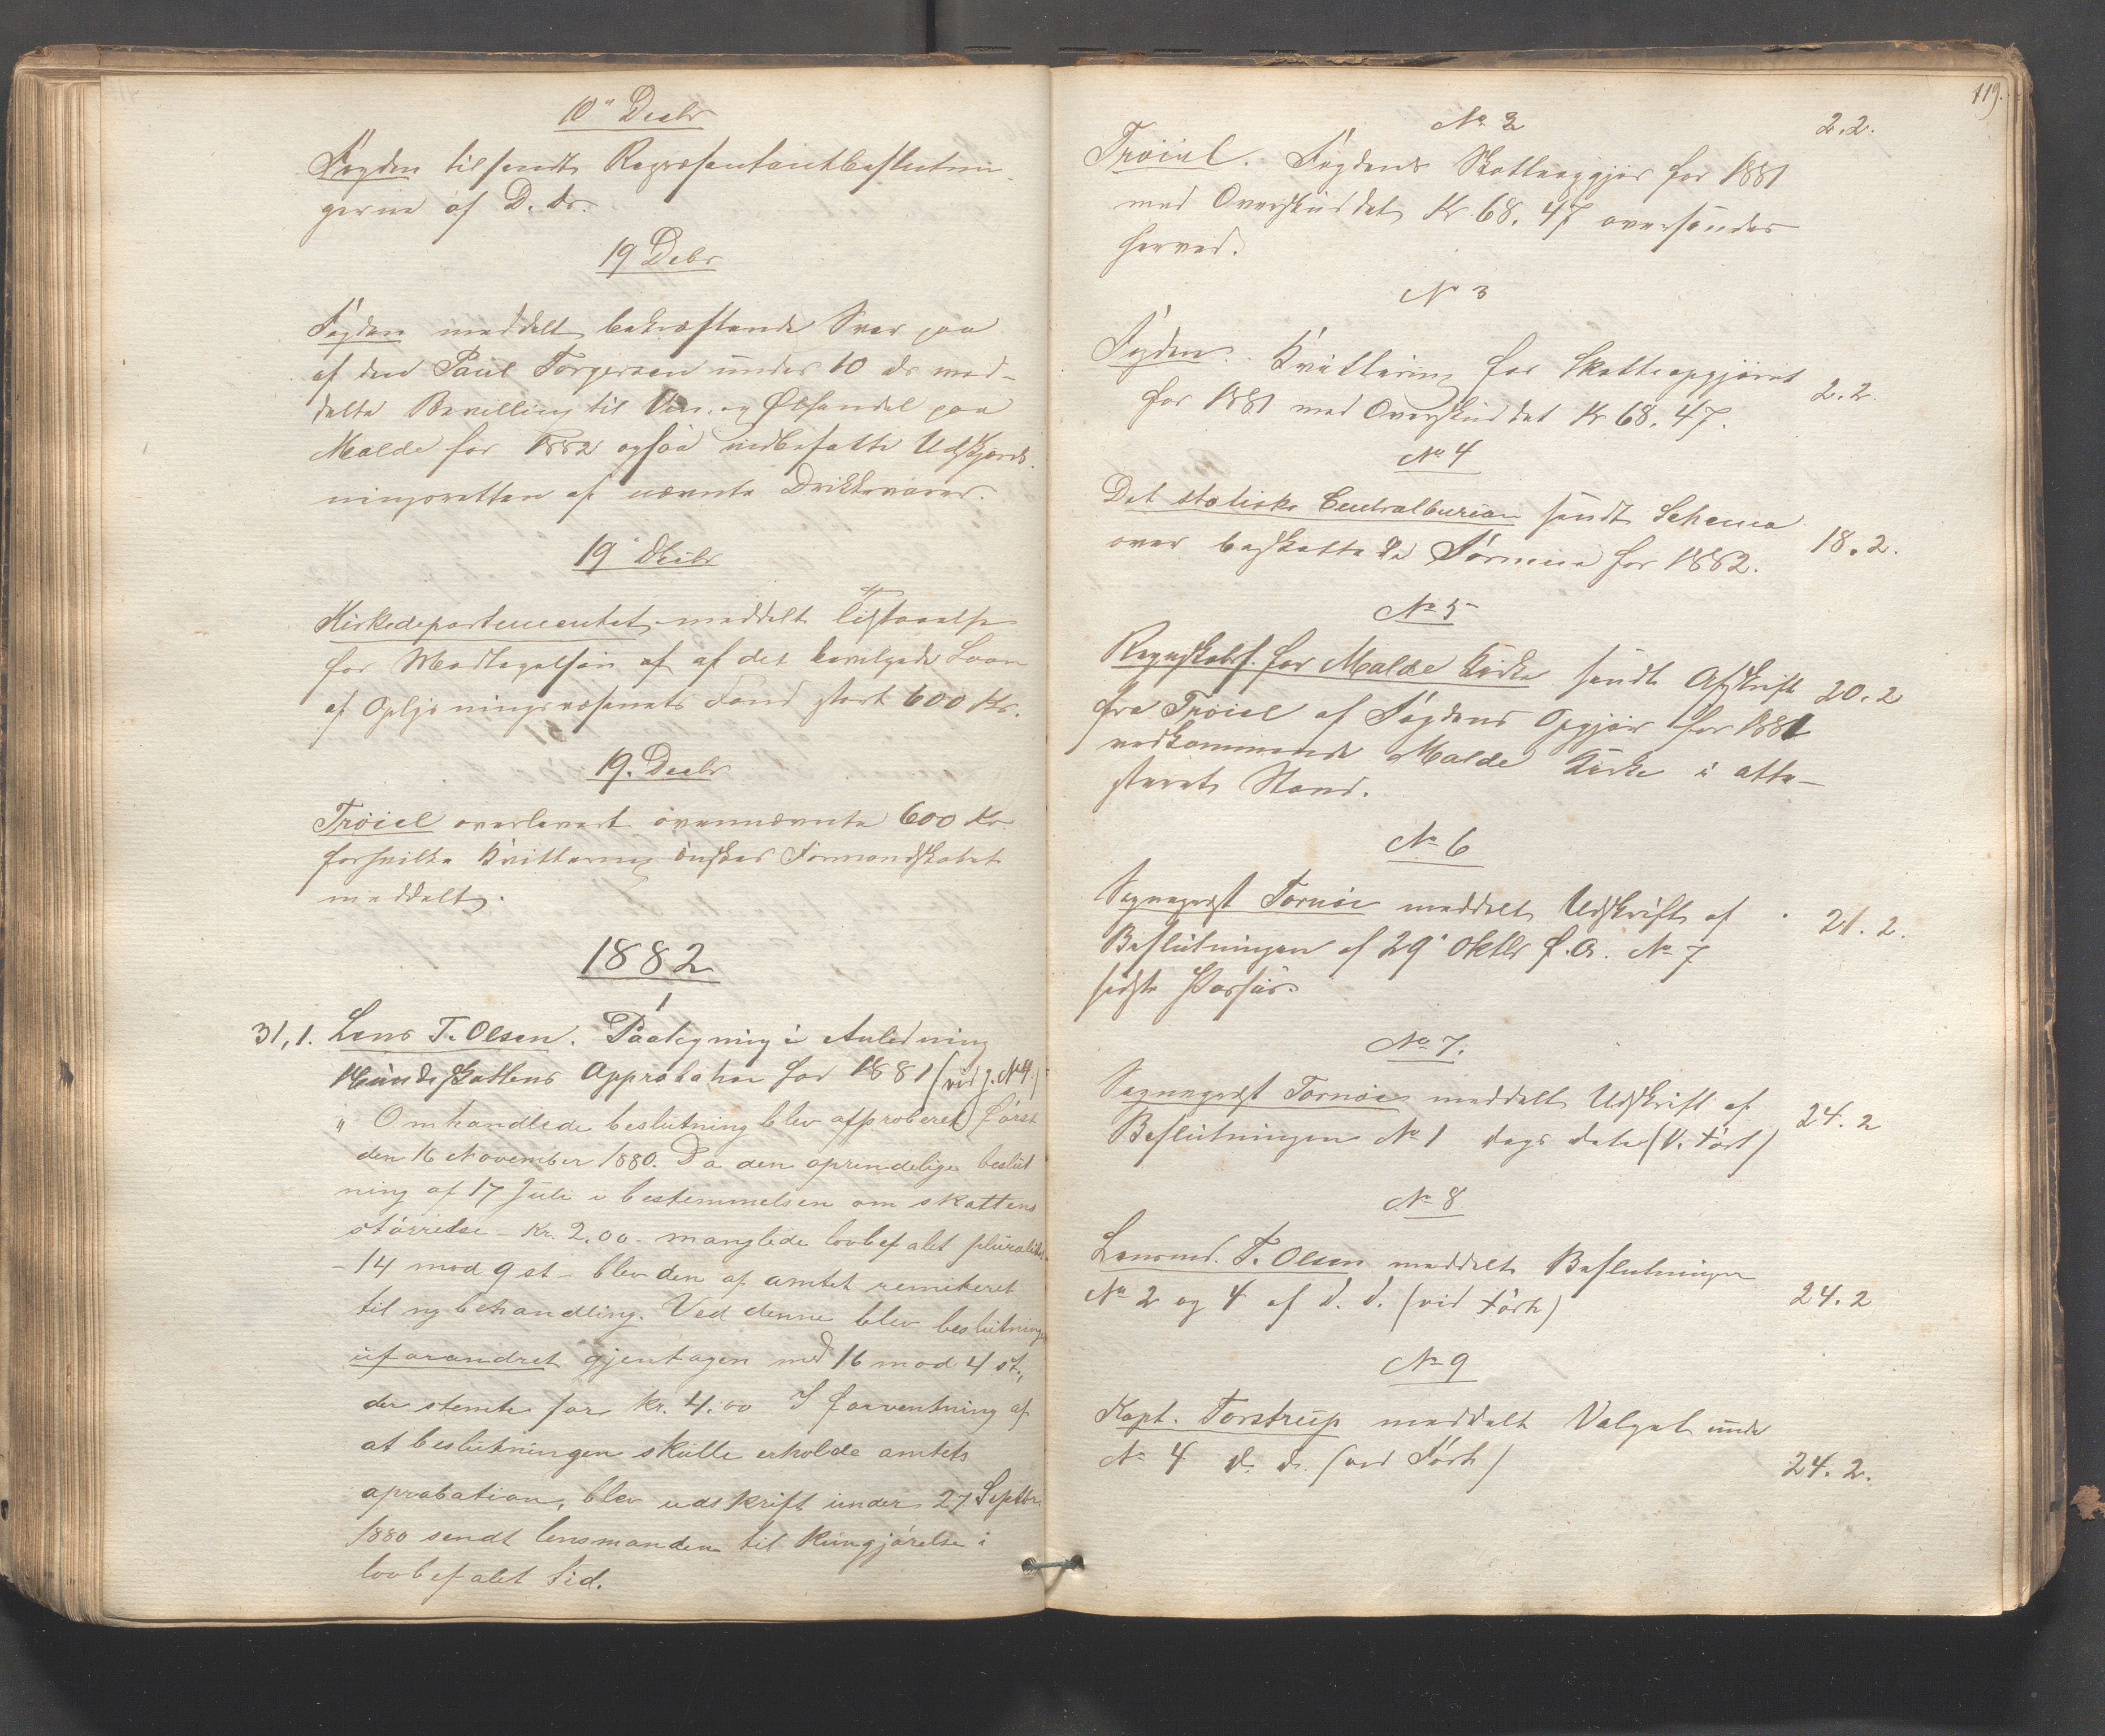 10" Decbr
Fogden tilsendt Repræsentantbeslutnin-
gerne af D. Ds.
19 Debr
Fogden meddelt bekræftende Svar paa
af den Paul Torgersen under 10 ds med-
delte Bevilling til Vin og Ølhandel paa
Malde for 1882 ogsaa indbefatte Udskjænk-
ningsretten af nævnte Drikkevarer.
19' Decbr
Kirkedepartementet meddelt Tilstaaelse
for Modtagelsen af af det bevilgede Laan
af Oplysningsvæsenets Fond stort 600 Kr.
19. Decbr
Trøiel overlevert ovennævnte 600 Kr.
forhvilke Kvittering ønskes Formandskabet
meddelt.
1882
1
31,1. Lens T. Olsen. Paategning i Anledning
Hundeskattens Approbation for 1881 (vid j. No 4.)
" Omhandlede beslutning blev approberet først
den 16 November 1880. Da den oprindelige beslut
ning af 17 Juli i bestemmelsen om skattens
størrelse - Kr. 2.00 - manglede lovbefalet pluralitet
- 14 mod 9 st - blev den af amtet remiteret
til ny behandling. Ved denne blev beslutningen
uforandret gjentagen med 16 mod 4 st.,
der stemte for kr. 4.00 I forventning af
at beslutningen skulle erholde amtets
aprobation, blev udskrift under 27 Septbr.
1880 sendt lensmanden til kungjørelse i
lovbefalet tid.
119.
No 2
2.2.
Trøiel. Fogdens Skatteopgjør for 1881
med Overskuddet Kr. 68.47 oversendes
herved.
No 3
Fogden. Kvittering for Skatteopgjøret
for 1881 med Overskuddet Kr 68.47.
2.2.
No 4
Det statiske Centralbureau sendt Schema
over beskattede Formue for 1882.
18.2.
No 5
Regnskabsf. for Malde Kirke sendt Afskrift
20.2
fra Trøiel af Fogdens Opgjør for 1881
vedkommende Malde Kirke i atte-
steret Stand.
No 6
Sogneprest Tornøe meddelt Udskrift af
21.2.
Beslutningen af 29' Oktbr f. A. No 7
sidste Passus.
No 7.
Sogneprest Tornøe meddelt Udskrift af
Beslutningen No 1 dags dato (V. Forh)
24.2
No 8
Lensmd. T. Olsen meddelt Beslutninger
No 2 og 4 af d. d. (vid Forh)
24.2
No 9
Kapt. Torstrup meddelt Valget under
No 4 d. d. (vid Forh)
24.2.